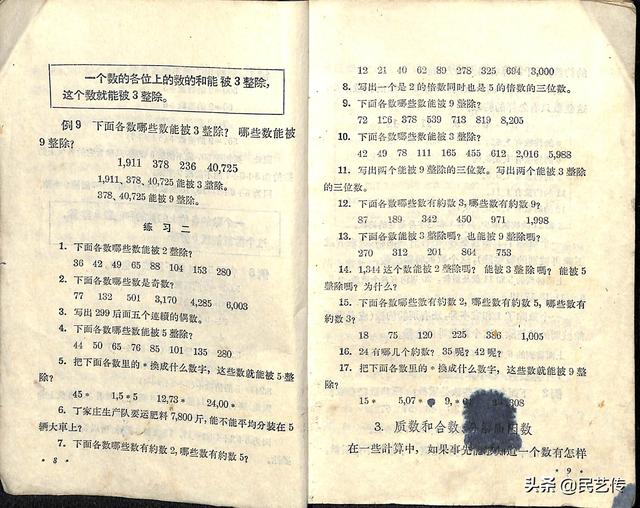 一个数的各位上的数的和能被3整除，
这个数就能被3整除。
例9 下面各数哪些数能被3整除？哪些数能被
9整除？
1,911 378 236 40,725
1,911、378、40,725能被3整除。
378、40,725能被9整除。
练习二
1. 下面各数哪些数能被2整除？
36 42 49 65 88 104 153 280
2. 下面各数哪些数是奇数？
77 132 501 3,170 4,285 6,003
3. 写出299后面五个連續的偶数。
4. 下面各数哪些数能被5整除？
44 50 65 76 85 101 135 280
5. 把下面各数里的*換成什么数字，这些数就能被5整
除？
45* 1,5*5 12,73* 24,00*
6. 丁家庄生产队要运肥料7,800斤，能不能平均分装在5
辆大車上？
7. 下面各数哪些数有約数2，哪些数有約数5？
·8·
12 21 40 62 89 278 325 694 3,000
8. 写出一个是2的倍数同时也是5的倍数的三位数。
9. 下面各数哪些数能被9整除？
72 126 378 539 713 819 8,205
10. 下面各数哪些数能被3整除？
42 49 78 111 165 455 612 2,016 5,988
11. 写出两个能被9整除的三位数。写出两个能被3整除
的三位数。
12. 下面各数哪些数有約数3，哪些数有約数9？
87 189 342 450 971 1,998
13. 下面各数能被3整除嗎？也能被9整除嗎？
270 312 201 864 753
14. 1,344这个数能被2整除嗎？能被3整除嗎？能被5
整除嗎？为什么？
15. 下面各数哪些数有約数2，哪些数有約数5，哪些数有
約数3？
18 75 120 225 386 1,005
16. 24有哪几个約数？35呢？42呢？
17. 把下面各数里的*換成什么数字，这些数就能被9整
除？
15* 5,07* 9,* 308
3. 质数和合数 因数
在一些計算中，如果事先 道一个数有怎样
·9·
头条 @民艺传